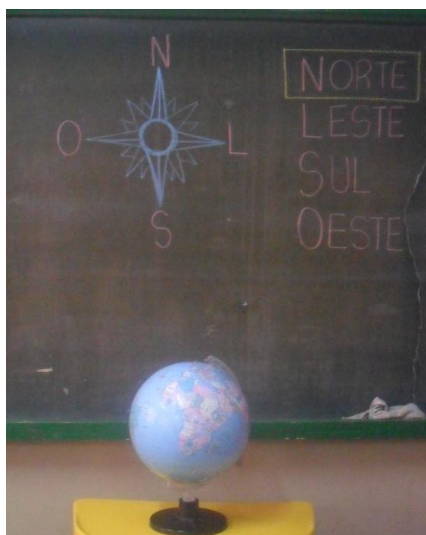 N
O L
S
NORTE
LESTE
SUL
OESTE